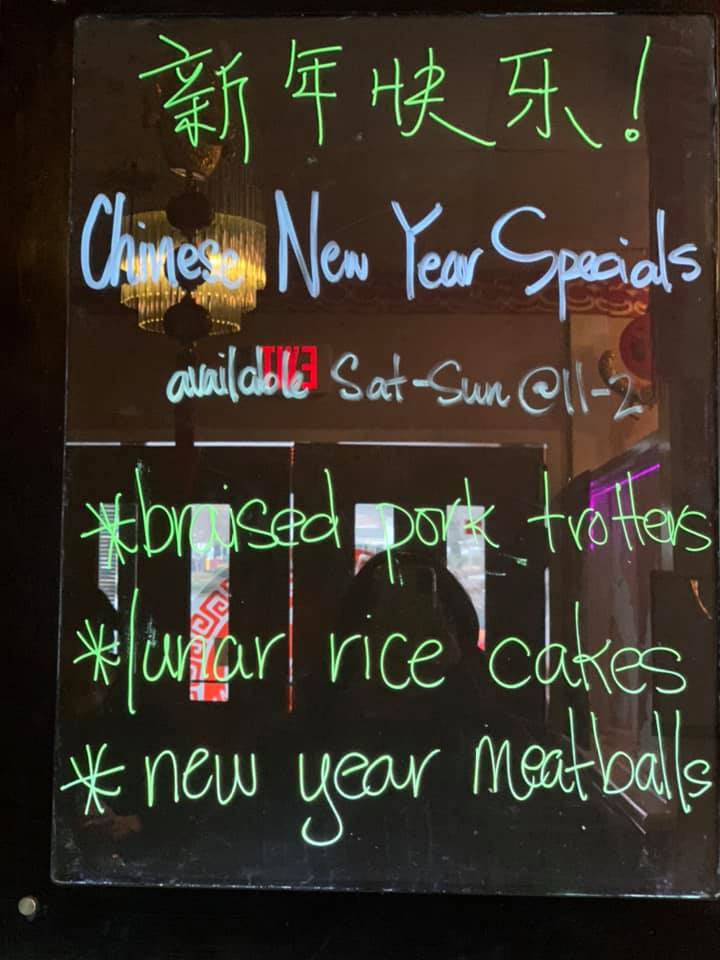 新年快乐!
Chinese New Year Specials
available Sat-Sun @11-2
EXIT
*braised pork trotters
*lunar rice cakes
*new year meatballs